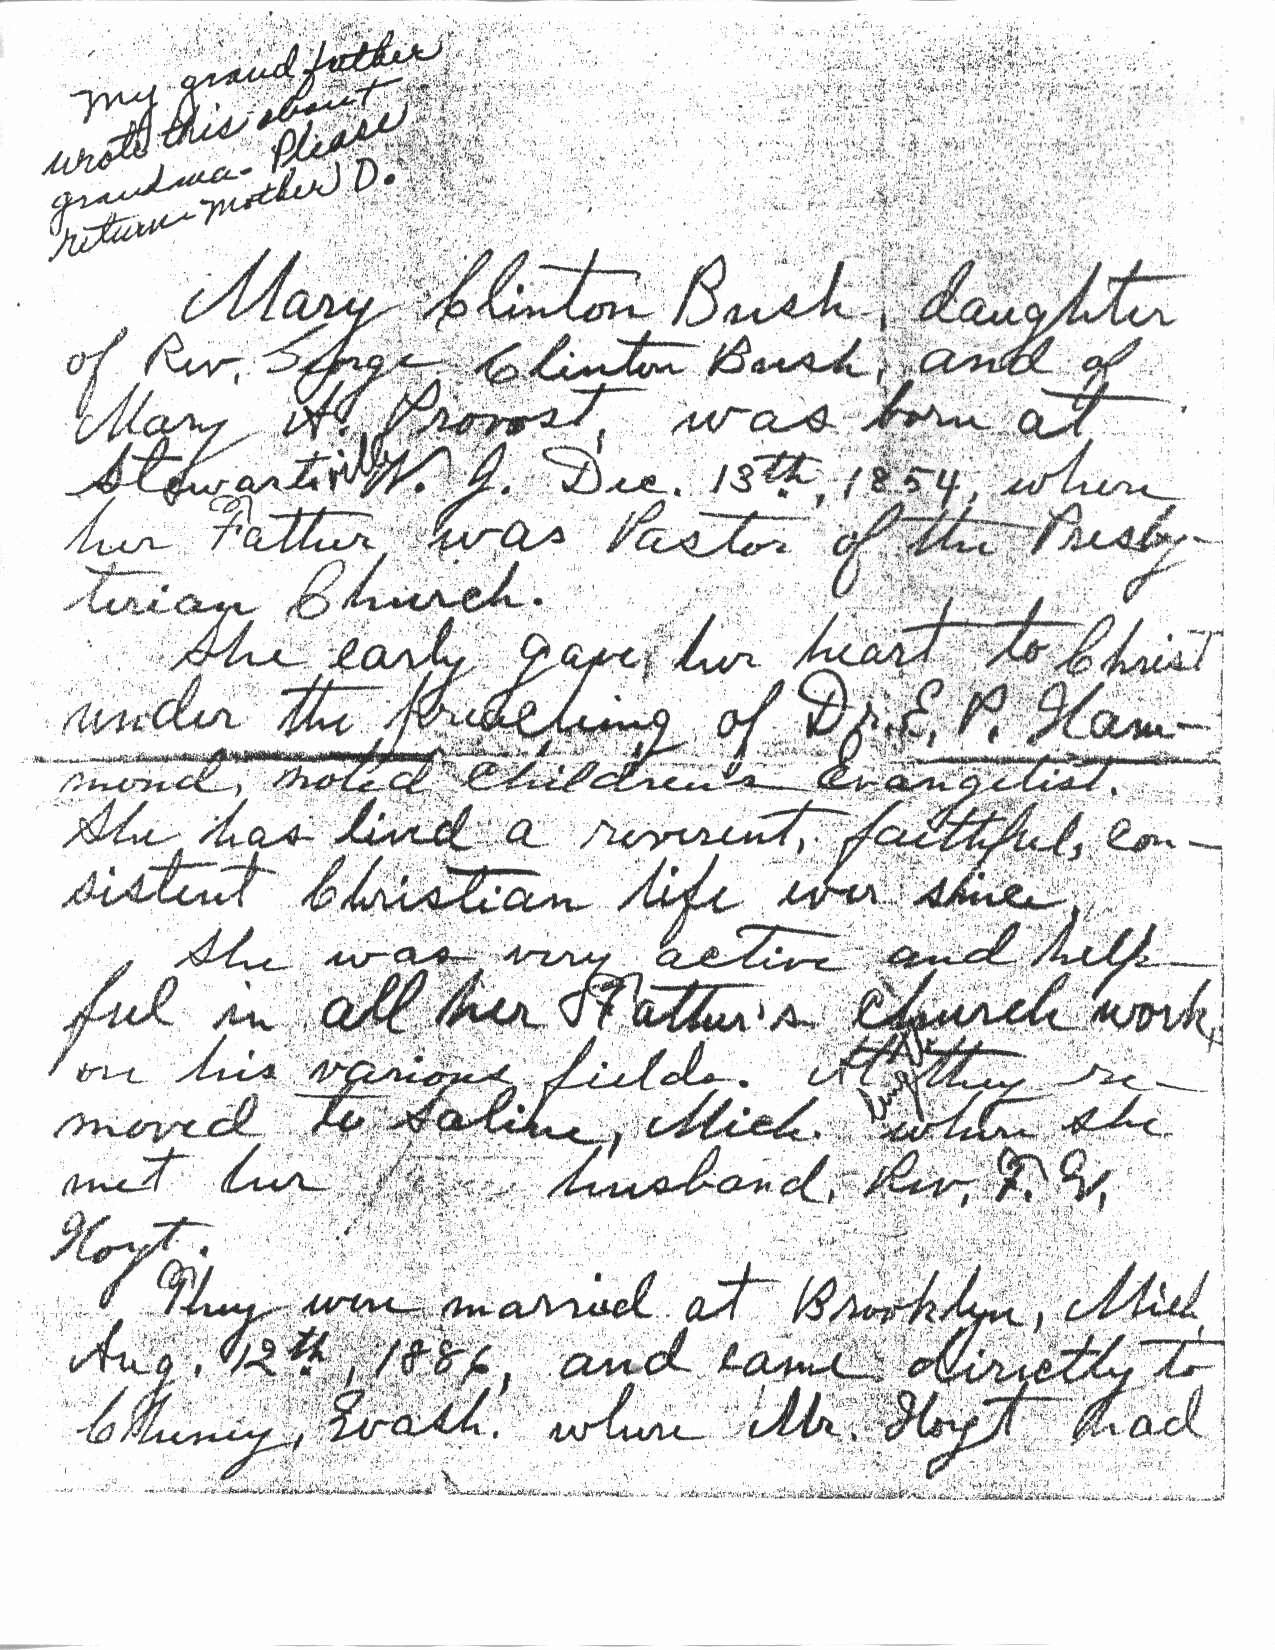 My grandfather
wrote this about
grandma. Please
return Mother D.
Mary Clinton Bush, daughter
of Rev. George Clinton Bush, and of
Mary H. Provost, was born at
Stewartsville N. J. Dec. 13th, 1854, where
her Father was Pastor of the Presby-
terian Church.
She early gave her heart to Christ
under the preaching of Dr. E. P. Ham-
mond, noted Children's Evangelist.
She has lived a reverent, faithful, con-
sistent Christian life ever since.
She was very active and help-
ful in all her Father's church work
on his various fields. At length they re-
moved to Saline, Mich. where she
met her husband, Rev. F. W.
Hoyt.
They were married at Brooklyn, Mich.
Aug. 12th, 1886, and came directly to
Cheney, Wash. where Mr. Hoyt had